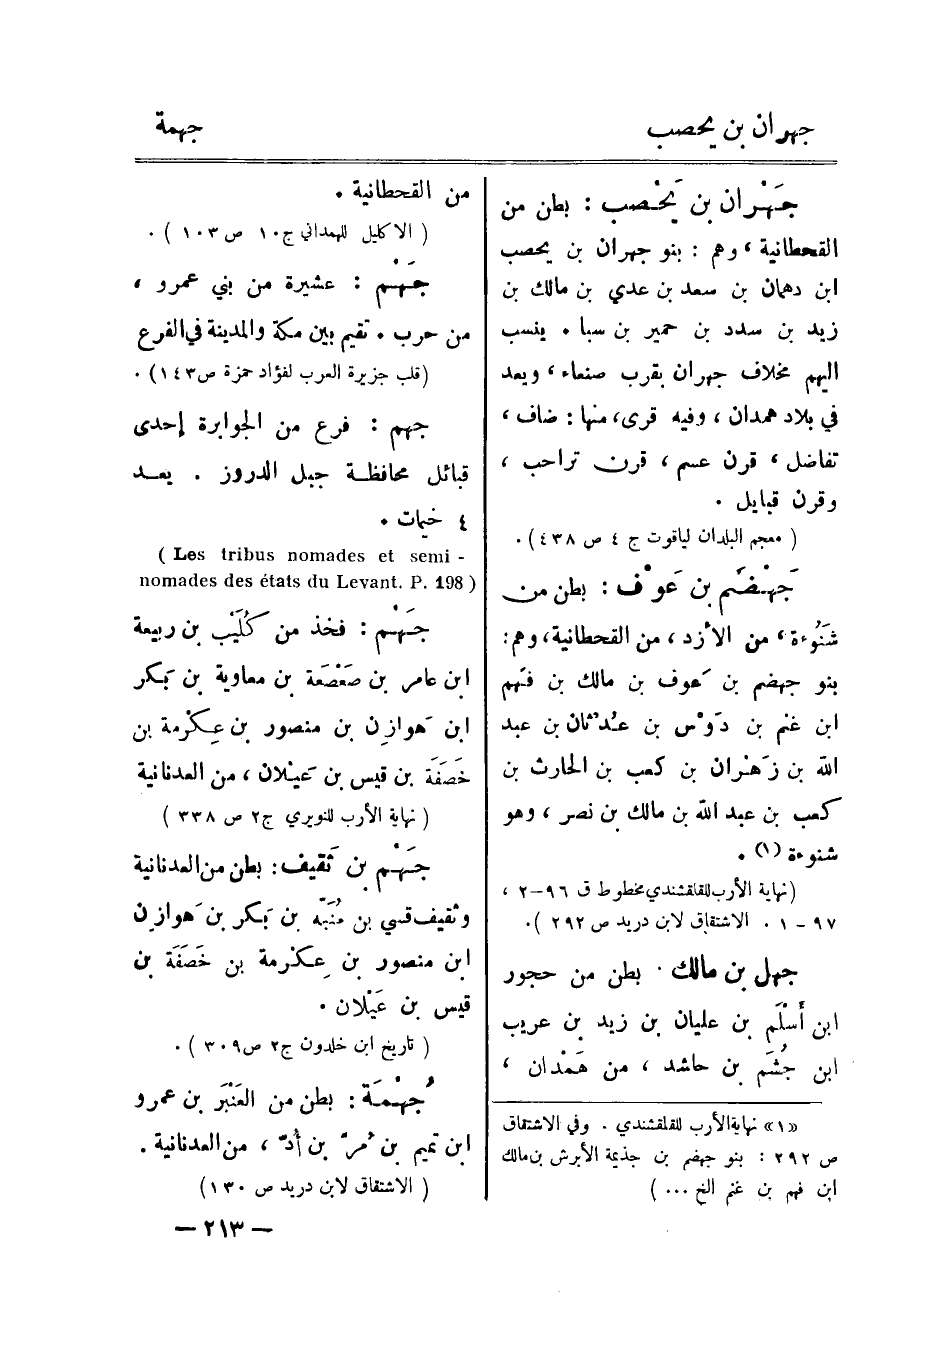 جهران بن يحصب
جهمة
جَهْران بن يَحْصب : بطن من
القحطانية ، وهم : بنو جهران بن يحصب
ابن دهمان بن سعد بن عدي بن مالك بن
زيد بن سدد بن حمير بن سبا . ينسب
اليهم مخلاف جهران بقرب صنعاء ، ويعد
في بلاد همدان ، وفيه قرى، منها : ضاف ،
تفاضل ، قرن عسم ، قرن تراحب ،
وقرن قبايل .
( معجم البلدان لياقوت ج ٤ ص ٤٣٨ ) .
جَهْضَم بن عَوْف : بطن من
شَنُوءة ، من الأزد ، من القحطانية، وهم:
بنو جهضم بن عَوف بن مالك بن فَهم
ابن غنم بن دَوْس بن عُدْثان بن عبد
الله بن زَهْران بن كعب بن الحارث بن
كعب بن عبد الله بن مالك بن نصر ، وهو
شنوءة (١) .
(نهاية الأرب للقلقشندي مخطوط ق ٩٦-٢ ،
٩٧ - ١ . الاشتقاق لابن دريد ص ٢٩٢ ).
جهل بن مالك . بطن من حجور
ابن أَسْلَم بن عليان بن زيد بن عريب
ابن جُشَم بن حاشد ، من هَمْدان ،
«١» نهاية الأرب للقلقشندي . وفي الاشتقاق
ص ٢٩٢ : بنو جهضم بن جذيمة الأبرش بن مالك
ابن فهم بن غنم الخ ... )
من القحطانية .
( الاكليل للهمداني ج١٠ ص١٠٣ ) .
جَهْم : عشيرة من بني عمرو ،
من حرب . تقيم بين مكة والمدينة في الفرع
(قلب جزيرة العرب لفؤاد حمزة ص١٤٣) .
جهم : فرع من الجوابرة إحدى
قبائل محافظة جبل الدروز . يعد
٤ خيات .
( Les tribus nomades et semi -
nomades des états du Levant. P. 198 )
جَهْم : فخذ من كُلَيْب بن ربيعة
ابن عامر بن صَعْصَعة بن معاوية بن بَكر
ابن هَوازِن بن منصور بن عِكْرمة بن
خَصَفَة بن قيس بن عَيْلان ، من العدنانية
( نهاية الأرب للنويري ج٢ ص ٣٣٨ )
جَهْم بن ثَقيف : بطن من العدنانية
وثقيف قسي بن مُنَبّه بن بَكر بن هَوازِن
ابن منصور بن عِكْرمة بن خَصَفَة بن
قيس بن عَيْلان .
( تاريخ ابن خلدون ج٢ ص٣٠٩ ) .
جُهْمَة : بطن من العَنْبَر بن عمرو
ابن تميم بن مُرّ بن أُدّ ، من العدنانية .
( الاشتقاق لابن دريد ص ١٣٠)
— ٢١٣ —